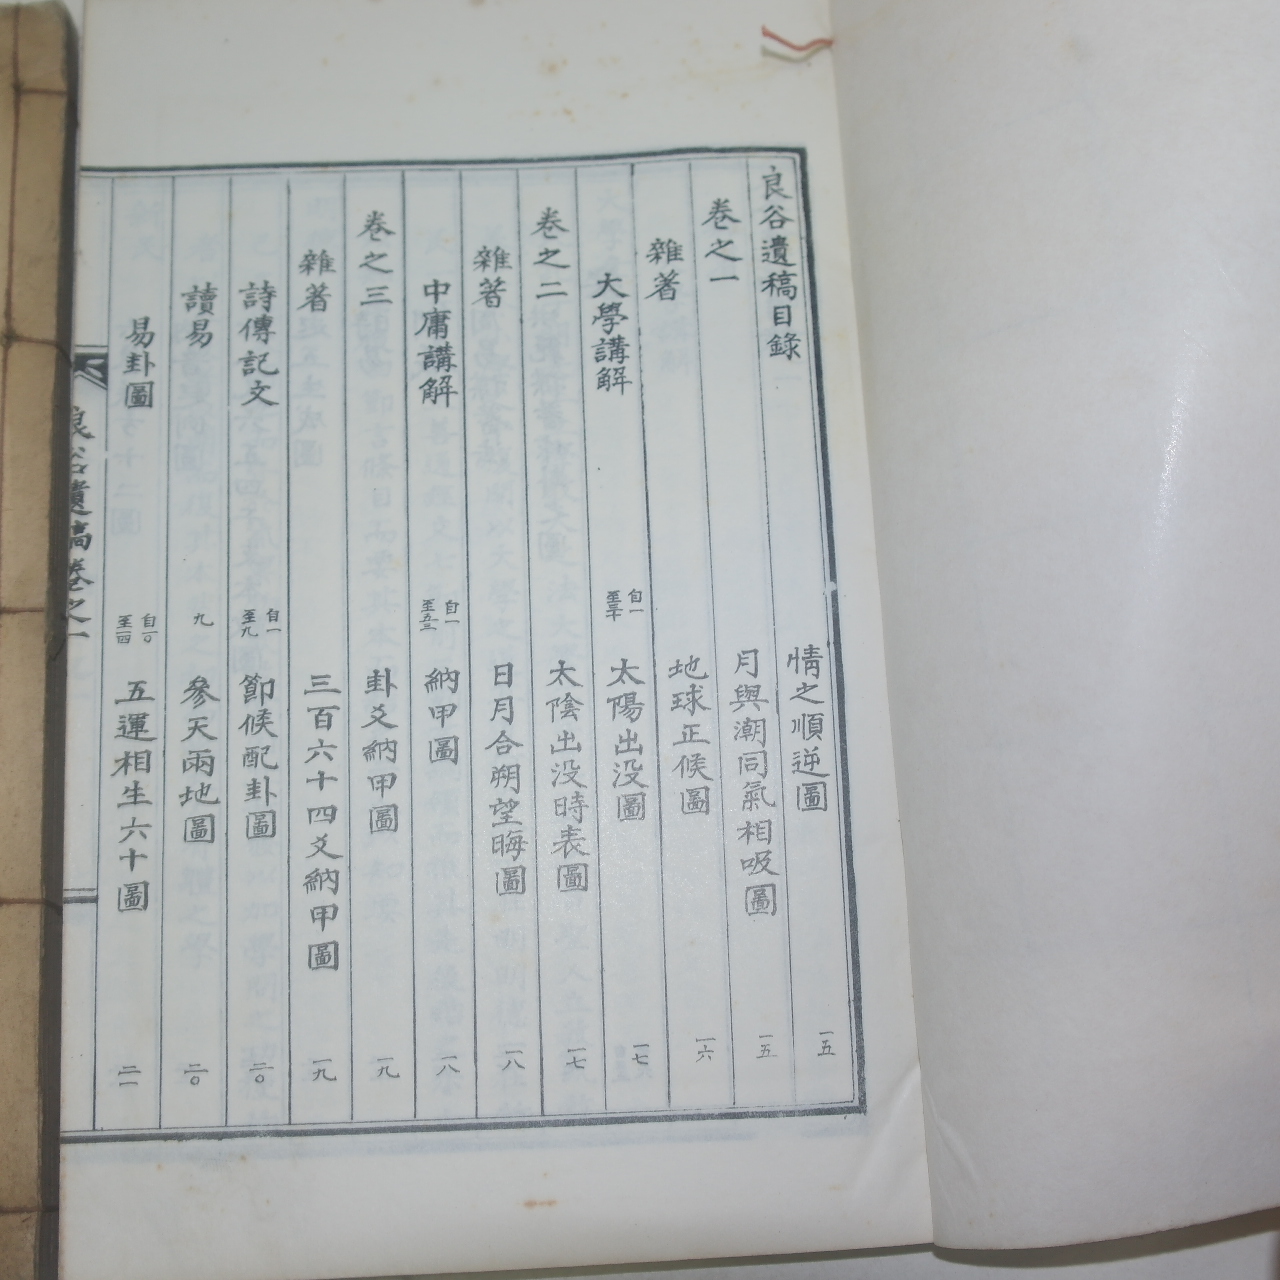 良谷遺稿目錄
卷之一
雜著
大學講解 自一至三十
卷之二
雜著
中庸講解 自一至五三
卷之三
雜著
詩傳記文 自一至九
讀易 九
易卦圖 自一〇至一四
情之順逆圖 一五
月與潮同氣相吸圖 一五
地球正候圖 一六
太陽出没圖 一七
太陰出没時表圖 一七
日月合朔望晦圖 一八
納甲圖 一八
卦爻納甲圖 一九
三百六十四爻納甲圖 一九
節候配卦圖 二〇
參天兩地圖 二〇
五運相生六十圖 二一
良谷遺稿卷之一